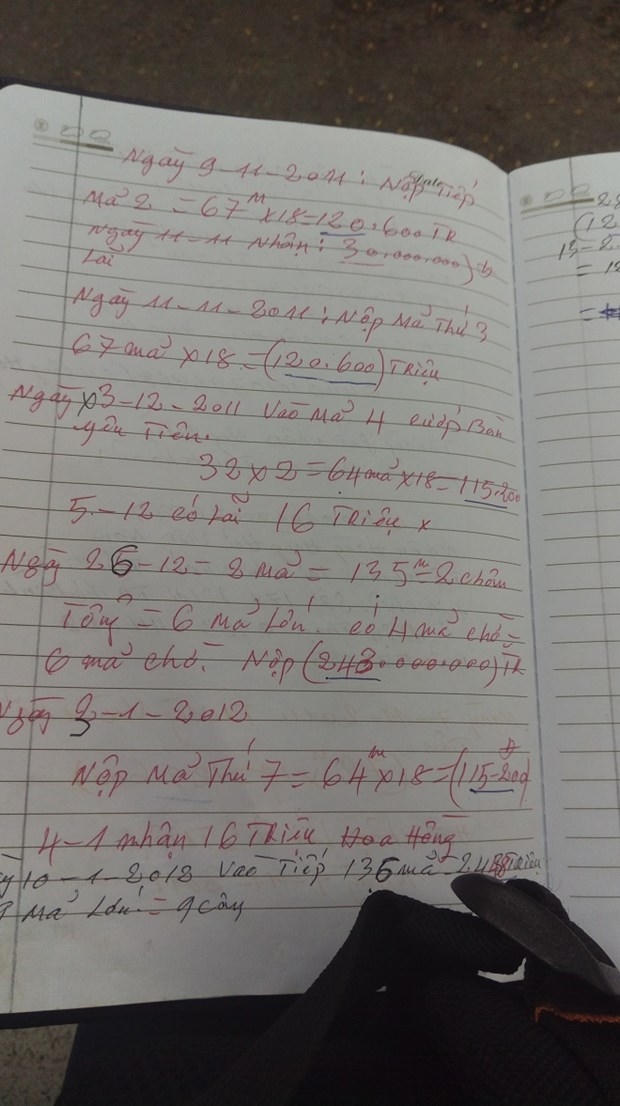 Ngày 9-11-2011: Nộp Tiếp
Mã 2 = 67 m x18=120.600 TR
Ngày 11-11 Nhận: 30.000.000)đ
Lãi
Ngày 11-11-2011: Nộp Mã Thứ 3
67 mã x18=(120.600) Triệu
Ngày x3-12-2011 Vào Mã 4 cướp Bàn
yêu Tiên.
32x2=64 mã x18=115.200
5-12 có lãi 16 Triệu x
Ngày 26-12= 2 Mã = 135 m=2 chôm
Tổng = 6 Mã Lớn. có 4 mã chó=
6 mã chó. Nộp (243.000.000) TR
Ngày 3-1-2012
Nộp Mã Thứ 7=64 m x18=(115-200)đ
4-1 nhận 16 Triệu Hoa Hồng
10-1-2012 Vào Tiếp 135 mã=243 Triệu
9 Mã Lớn.=9 cây
(12
13-2